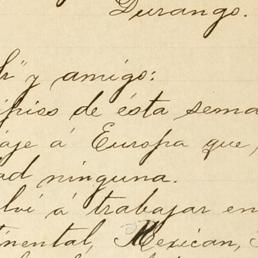 Durango.
y amigo:
de ésta sema
aje á Europa que
ad ninguna.
lví á trabajar en
tinental, Mexican,